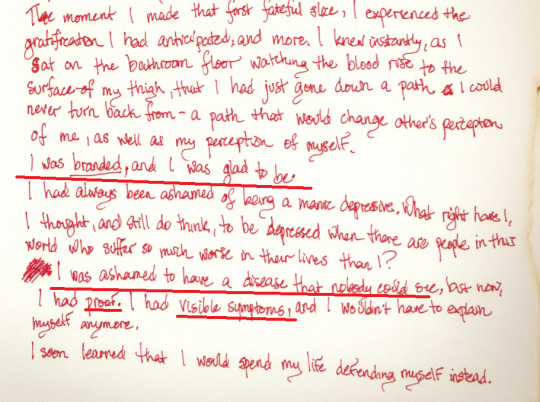 The moment I made that first fateful slice, I experienced the
gratification I had anticipated, and more. I knew instantly, as I
sat on the bathroom floor watching the blood rise to the
surface of my thigh, that I had just gone down a path I could
never turn back from - a path that would change other's perception
of me, as well as my perception of myself.
I was branded, and I was glad to be.
I had always been ashamed of being a manic depressive. What right have I,
I thought, and still do think, to be depressed when there are people in this
world who suffer so much worse in their lives than I?
I was ashamed to have a disease that nobody could see, but now,
I had proof. I had visible symptoms, and I wouldn't have to explain
myself anymore.
I soon learned that I would spend my life defending myself instead.